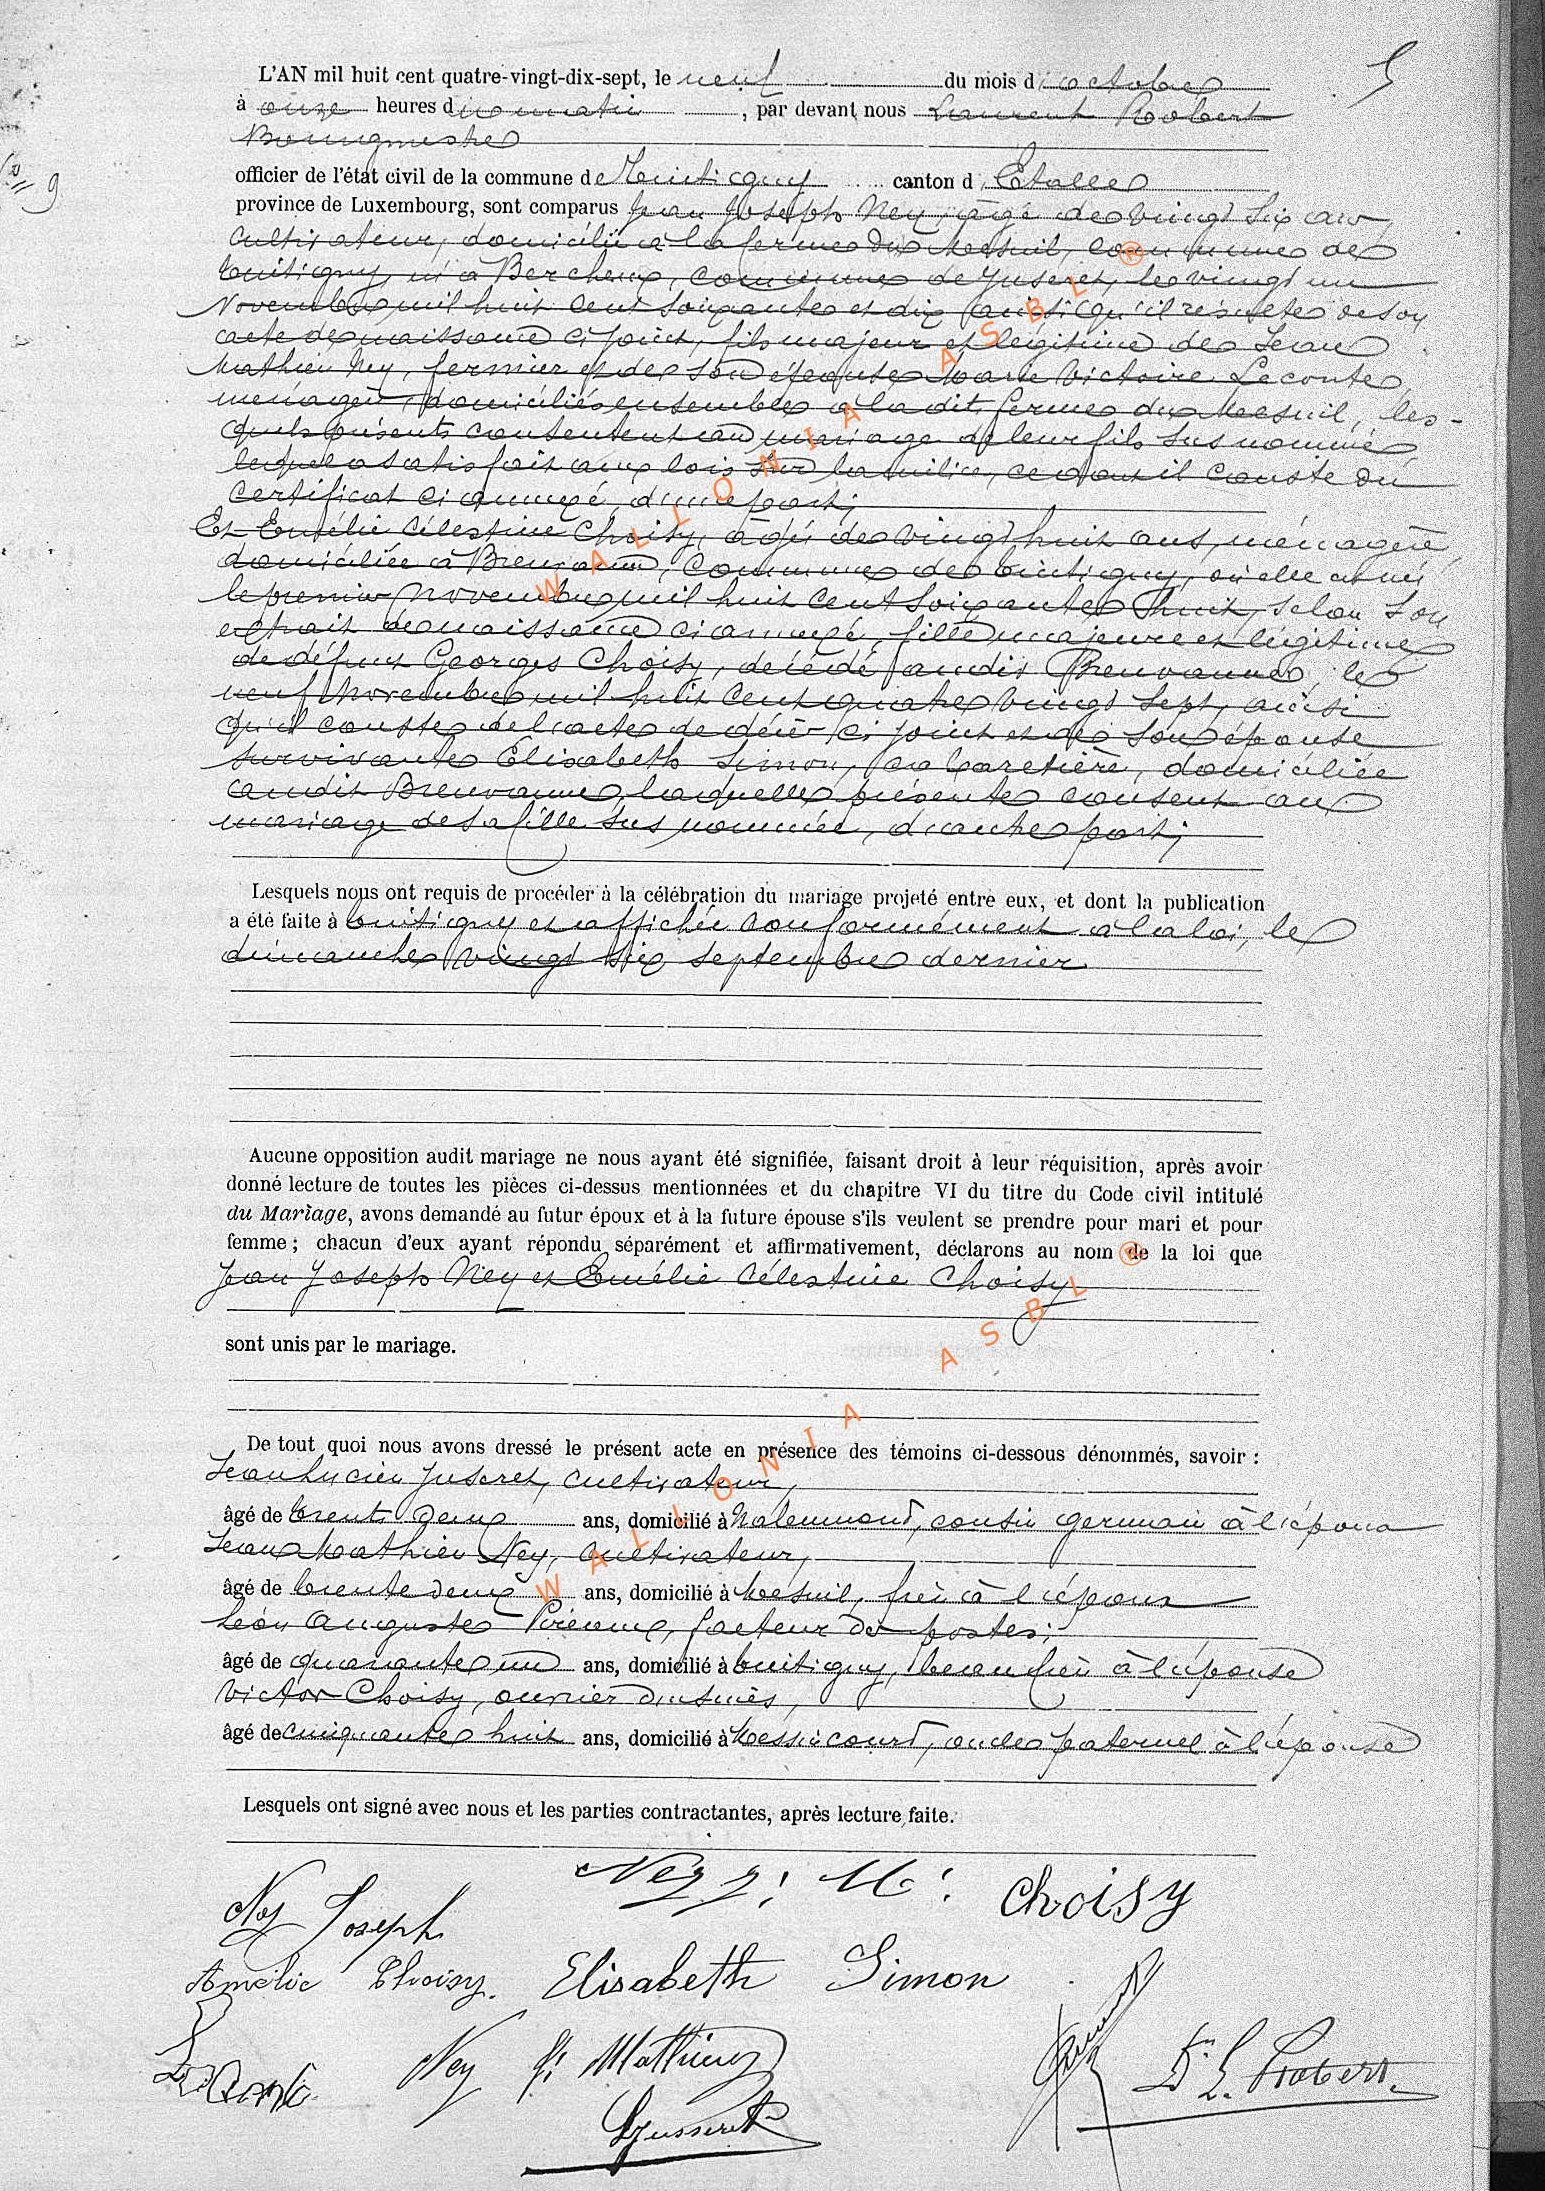 5
L'AN mil huit cent quatre-vingt-dix-sept, le neuf du mois d'octobre
à onze heures du matin, par devant nous Laurent Robert
Bourgmestre
N° 9
officier de l'état civil de la commune de Tintigny canton d'Etalle
province de Luxembourg, sont comparus Jean Joseph Ney, âgé de vingt six ans,
cultivateur, domicilié à la ferme du Mesnil, commune de
Tintigny, né à Bercheux, commune de Juseret, le vingt un
Novembre mil huit cent soixante et dix ainsi qu'il résulte de son
acte de naissance ci joint, fils majeur et légitime de Jean
Mathieu Ney, fermier et de son épouse Marie Victoire Leconte,
ménagère, domiciliés ensemble à la dite ferme du Mesnil, les-
quels présents consentent au mariage de leur fils sus nommé
lequel a satisfait aux lois sur la milice, ce dont il conste du
certificat ci annexé, d'une part;
Et Emélie Célestine Choisy, âgée de vingt huit ans, ménagère,
domiciliée à Breuvanne, commune de Tintigny, où elle est née
le premier Novembre mil huit cent soixante huit, selon son
extrait de naissance ci annexé, fille majeure et légitime
de défunt Georges Choisy, décédé audit Breuvanne, le
neuf novembre mil huit cent quatre vingt sept, ainsi
qu'il conste de l'acte de décès ci joint et de son épouse
survivante Elisabeth Simon, cabaretière, domiciliée
audit Breuvanne, laquelle présente consent au
mariage de sa fille sus nommée, d'autre part;
Lesquels nous ont requis de procéder à la célébration du mariage projeté entre eux, et dont la publication
a été faite à Tintigny et affichée conformément à la loi, le
dimanche vingt six septembre dernier
Aucune opposition audit mariage ne nous ayant été signifiée, faisant droit à leur réquisition, après avoir
donné lecture de toutes les pièces ci-dessus mentionnées et du chapitre VI du titre du Code civil intitulé
du Mariage, avons demandé au futur époux et à la future épouse s'ils veulent se prendre pour mari et pour
femme ; chacun d'eux ayant répondu séparément et affirmativement, déclarons au nom de la loi que
Jean Joseph Ney et Emélie Célestine Choisy
sont unis par le mariage.
De tout quoi nous avons dressé le présent acte en présence des témoins ci-dessous dénommés, savoir :
Jean Lucien Juseret, cultivateur,
âgé de trente deux ans, domicilié à Malemaison, cousin germain à l'époux
Jean Mathieu Ney, cultivateur,
âgé de trente deux ans, domicilié à Mesnil, frère à l'époux
Léon Auguste facteur des postes;
âgé de quarante un ans, domicilié à Tintigny, beau frère à l'épouse
Victor Choisy, ouvrier d'usines,
âgé de cinquante huit ans, domicilié à Messincourt, oncle paternel à l'épouse
Lesquels ont signé avec nous et les parties contractantes, après lecture faite.
Ney J: M: Choisy
Ney Joseph
Amélie Choisy. Elisabeth Simon
Leconte Ney J: Mathieu Dr L. Robert
LJusseret
WALLONIA ASBL ®
WALLONIA ASBL ®